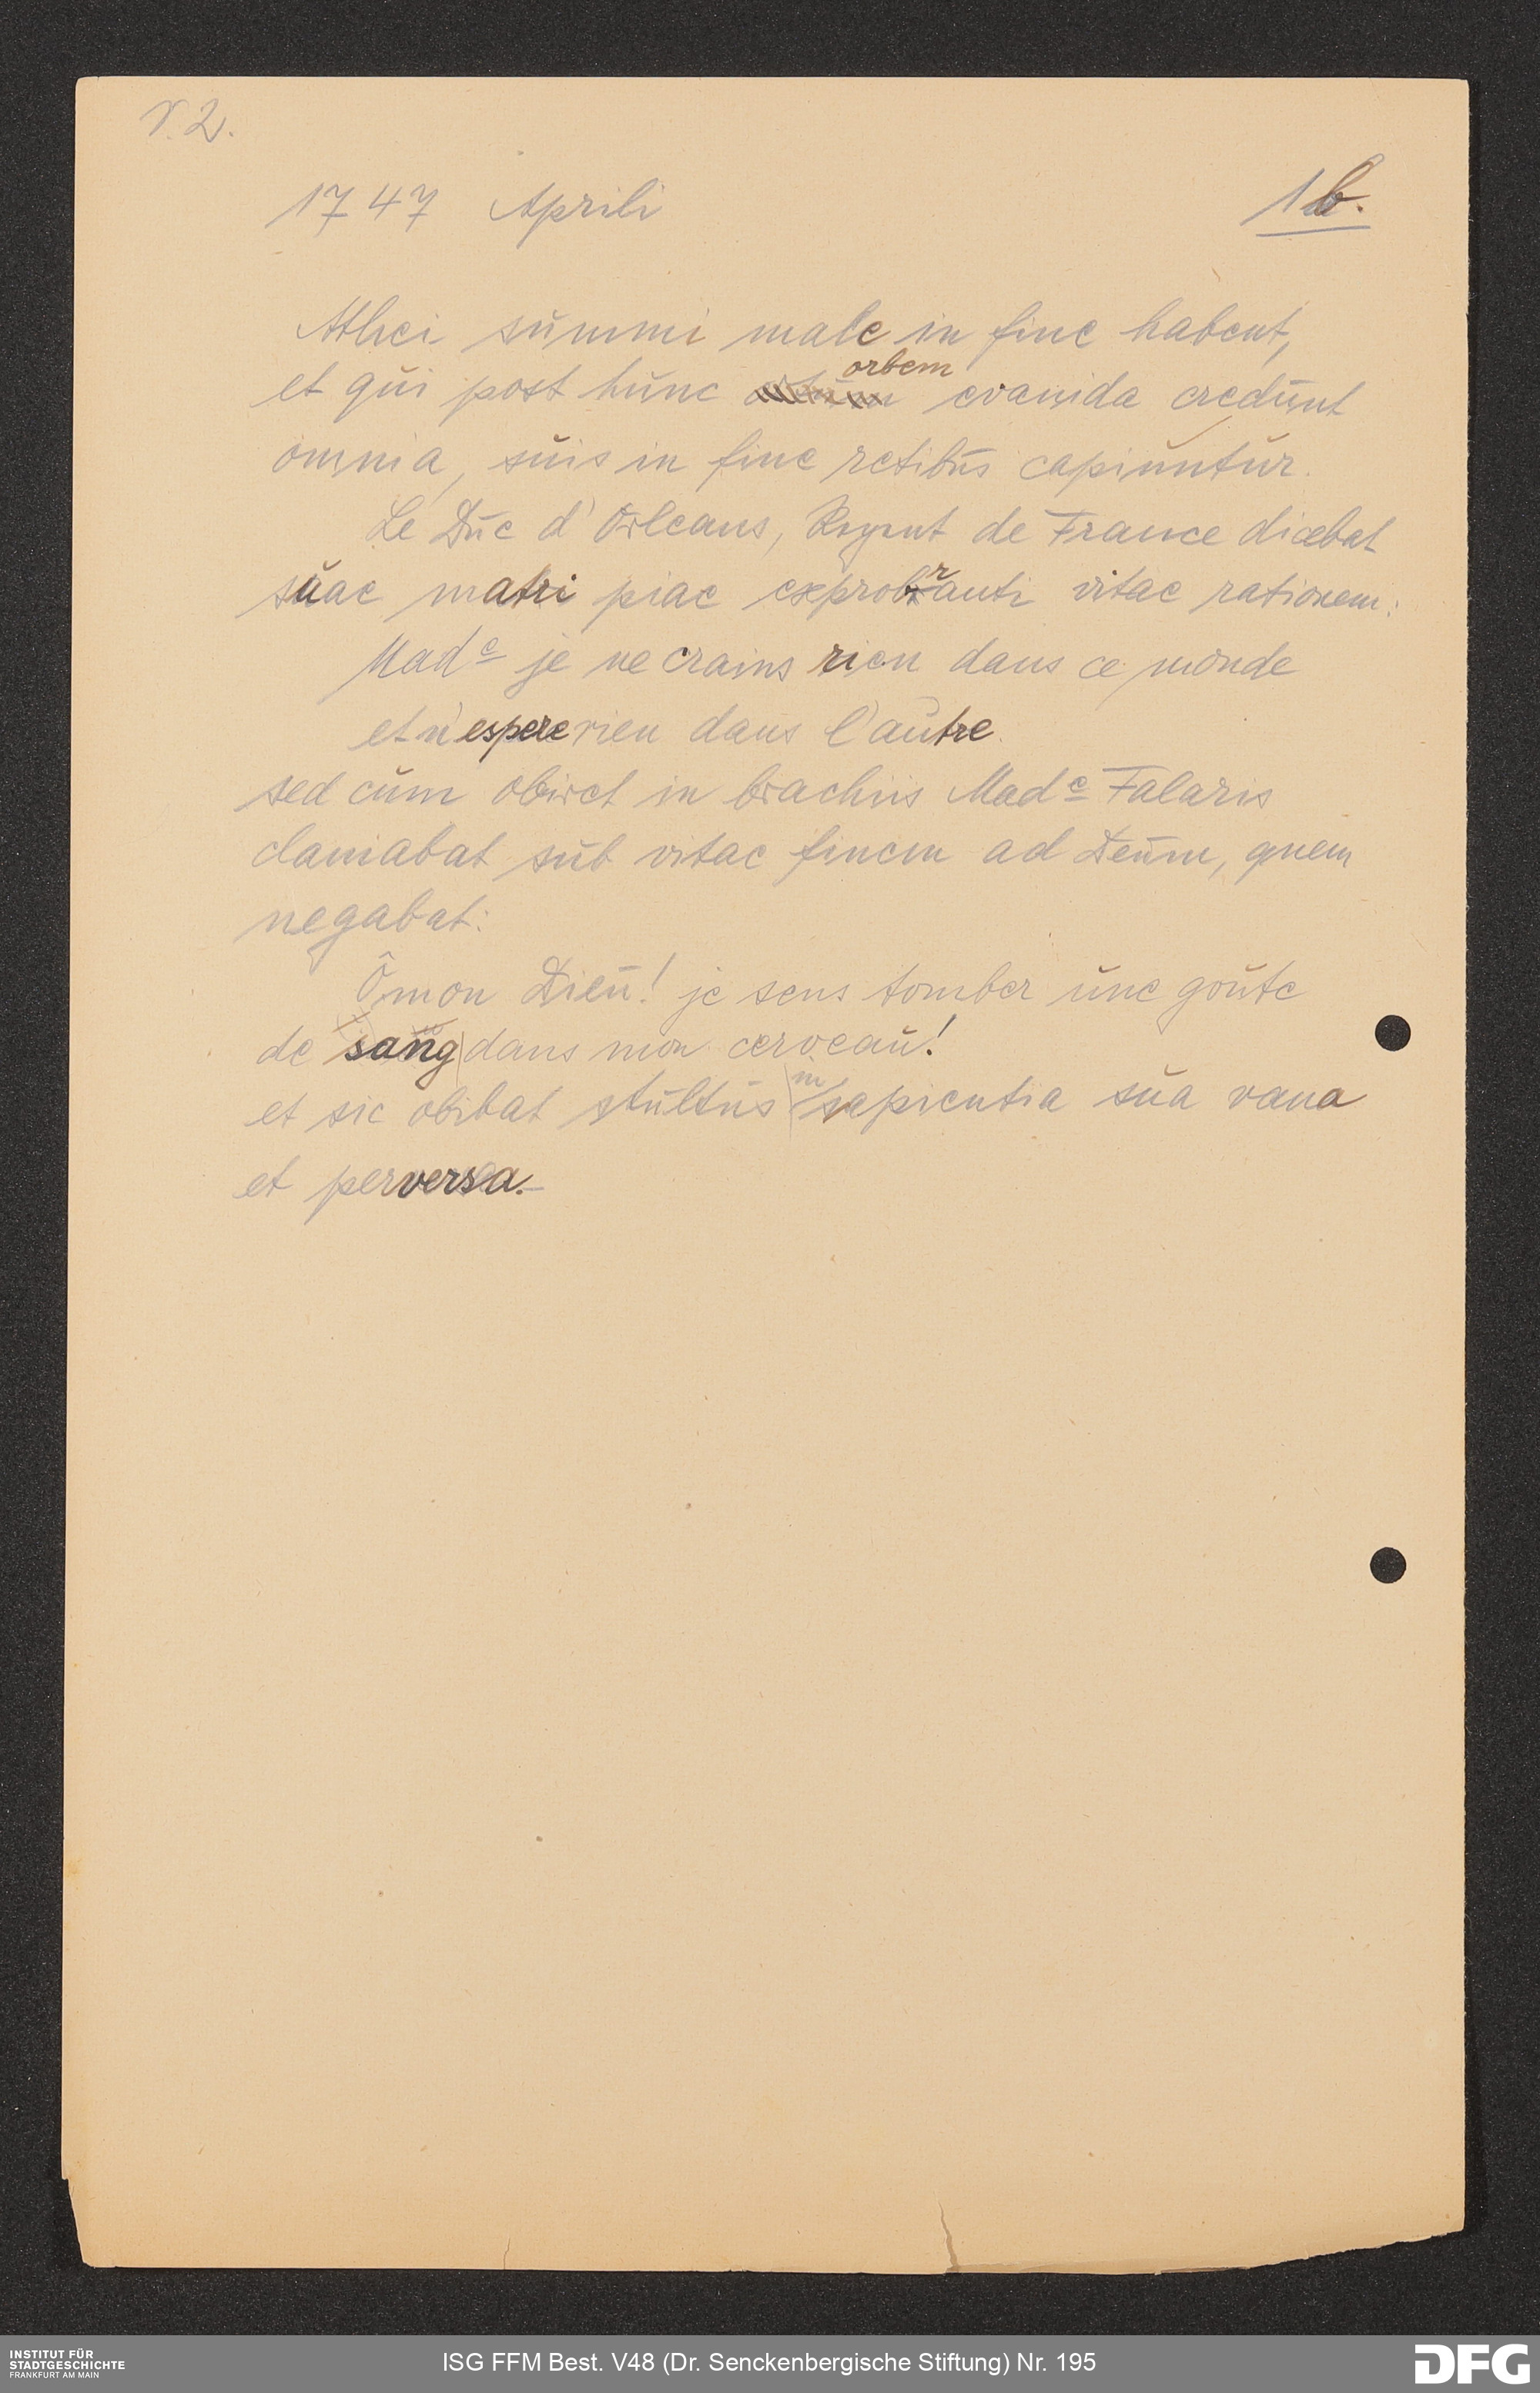 V. 2.
1747 Aprili
1b.
Athei summi male in fine habent,
et qui post hunc orbem evanida credunt
omnia, suis in fine retibus capiuntur.
Le Duc d'Orleans, Regent de France dicebat
suae matri piae exprobranti vitae rationem:
Made je ne crains rien dans ce monde
et n'espere rien dans l'autre.
sed cum obiret in brachiis Made Falaris
clamabat sub vitae finem ad Deum, quem
negabat:
Ô mon Dieu! je sens tomber une goute
de sang dans mon cerveau!
et sic obibat stultus in sapientia sua vana
et perversa.–
INSTITUT FÜR
STADTGESCHICHTE
FRANKFURT AM MAIN
ISG FFM Best. V48 (Dr. Senckenbergische Stiftung) Nr. 195
DFG